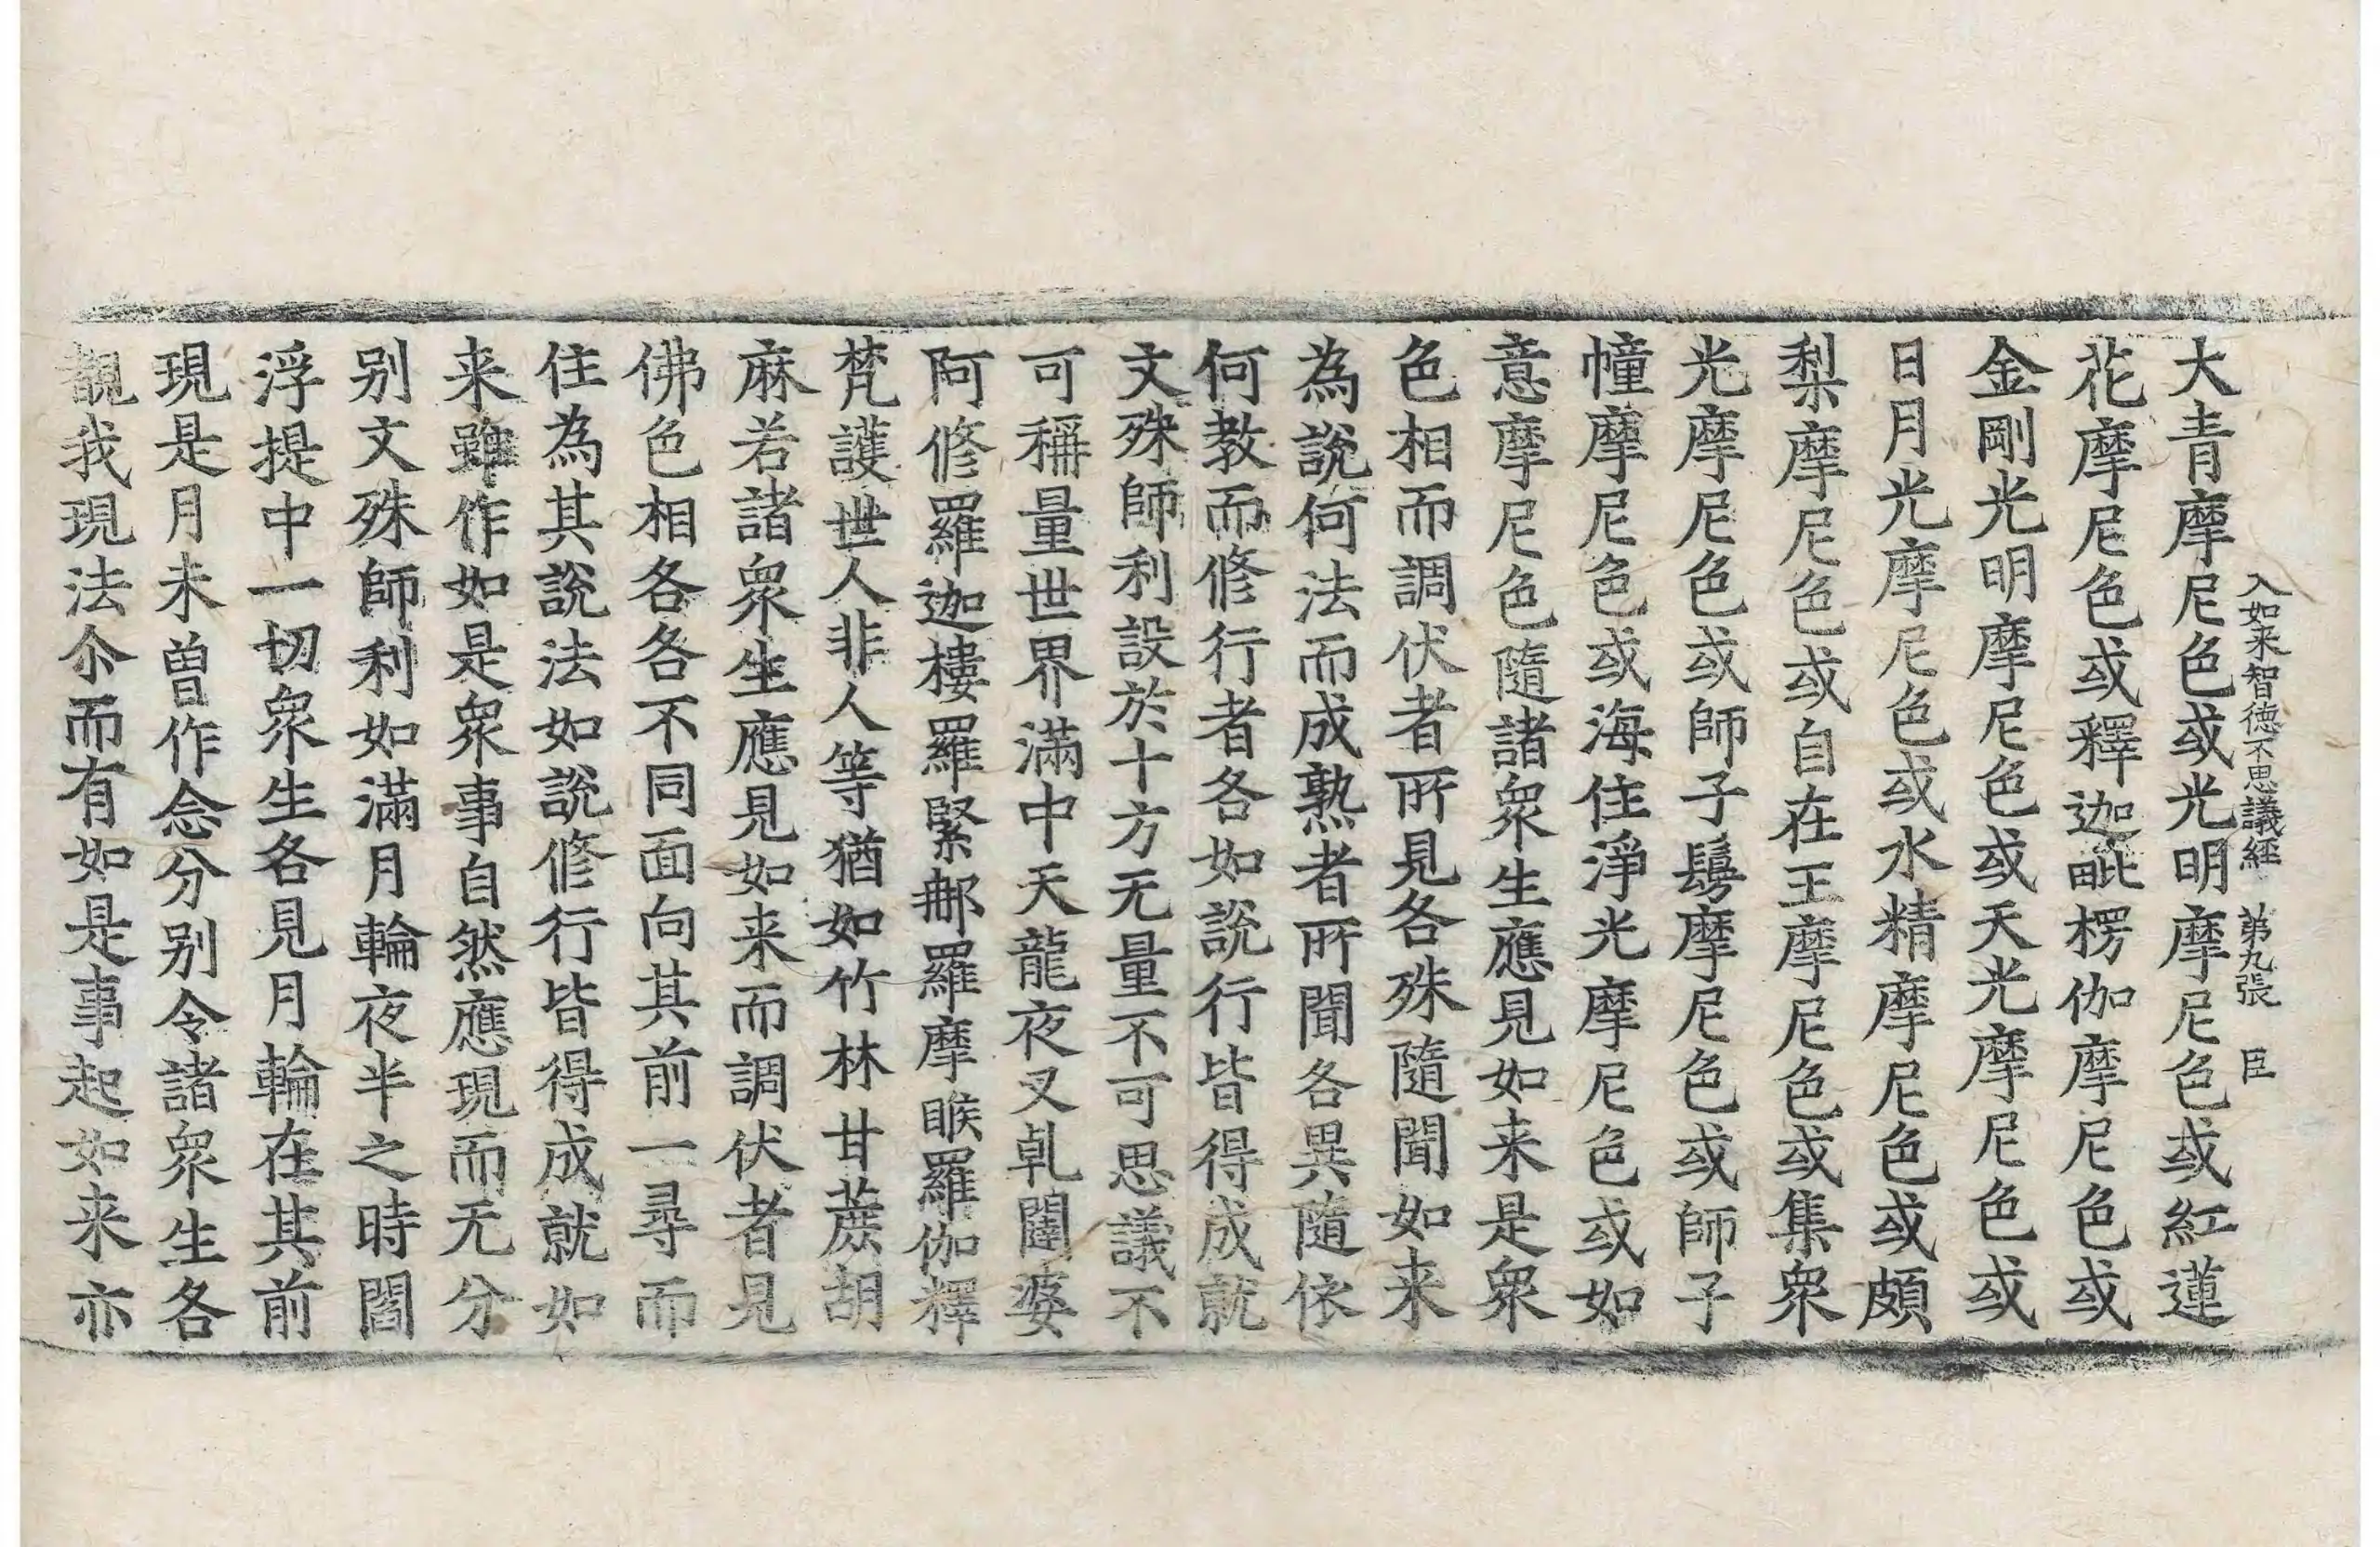 入如来智徳不思議経 第九張 臣
大青摩尼色或光明摩尼色或紅蓮
花摩尼色或釋迦毗楞伽摩尼色或
金剛光明摩尼色或天光摩尼色或
日月光摩尼色或水精摩尼色或頗
梨摩尼色或自在王摩尼色或集衆
光摩尼色或師子鬘摩尼色或師子
幢摩尼色或海住淨光摩尼色或如
意摩尼色隨諸衆生應見如来是衆
色相而調伏者所見各殊隨聞如来
為說何法而成熟者所聞各異隨依
何教而修行者各如說行皆得成就
文殊師利設於十方无量不可思議不
可稱量世界滿中天龍夜叉乹闥婆
阿修羅迦樓羅緊那羅摩睺羅伽釋
梵護世人非人等猶如竹林甘蔗胡
麻若諸衆生應見如来而調伏者見
佛色相各各不同面向其前一尋而
住為其說法如說修行皆得成就如
来雖作如是衆事自然應現而无分
别文殊師利如滿月輪夜半之時閻
浮提中一切衆生各見月輪在其前
現是月未曽作念分别令諸衆生各
觀我現法尒而有如是事起如来亦